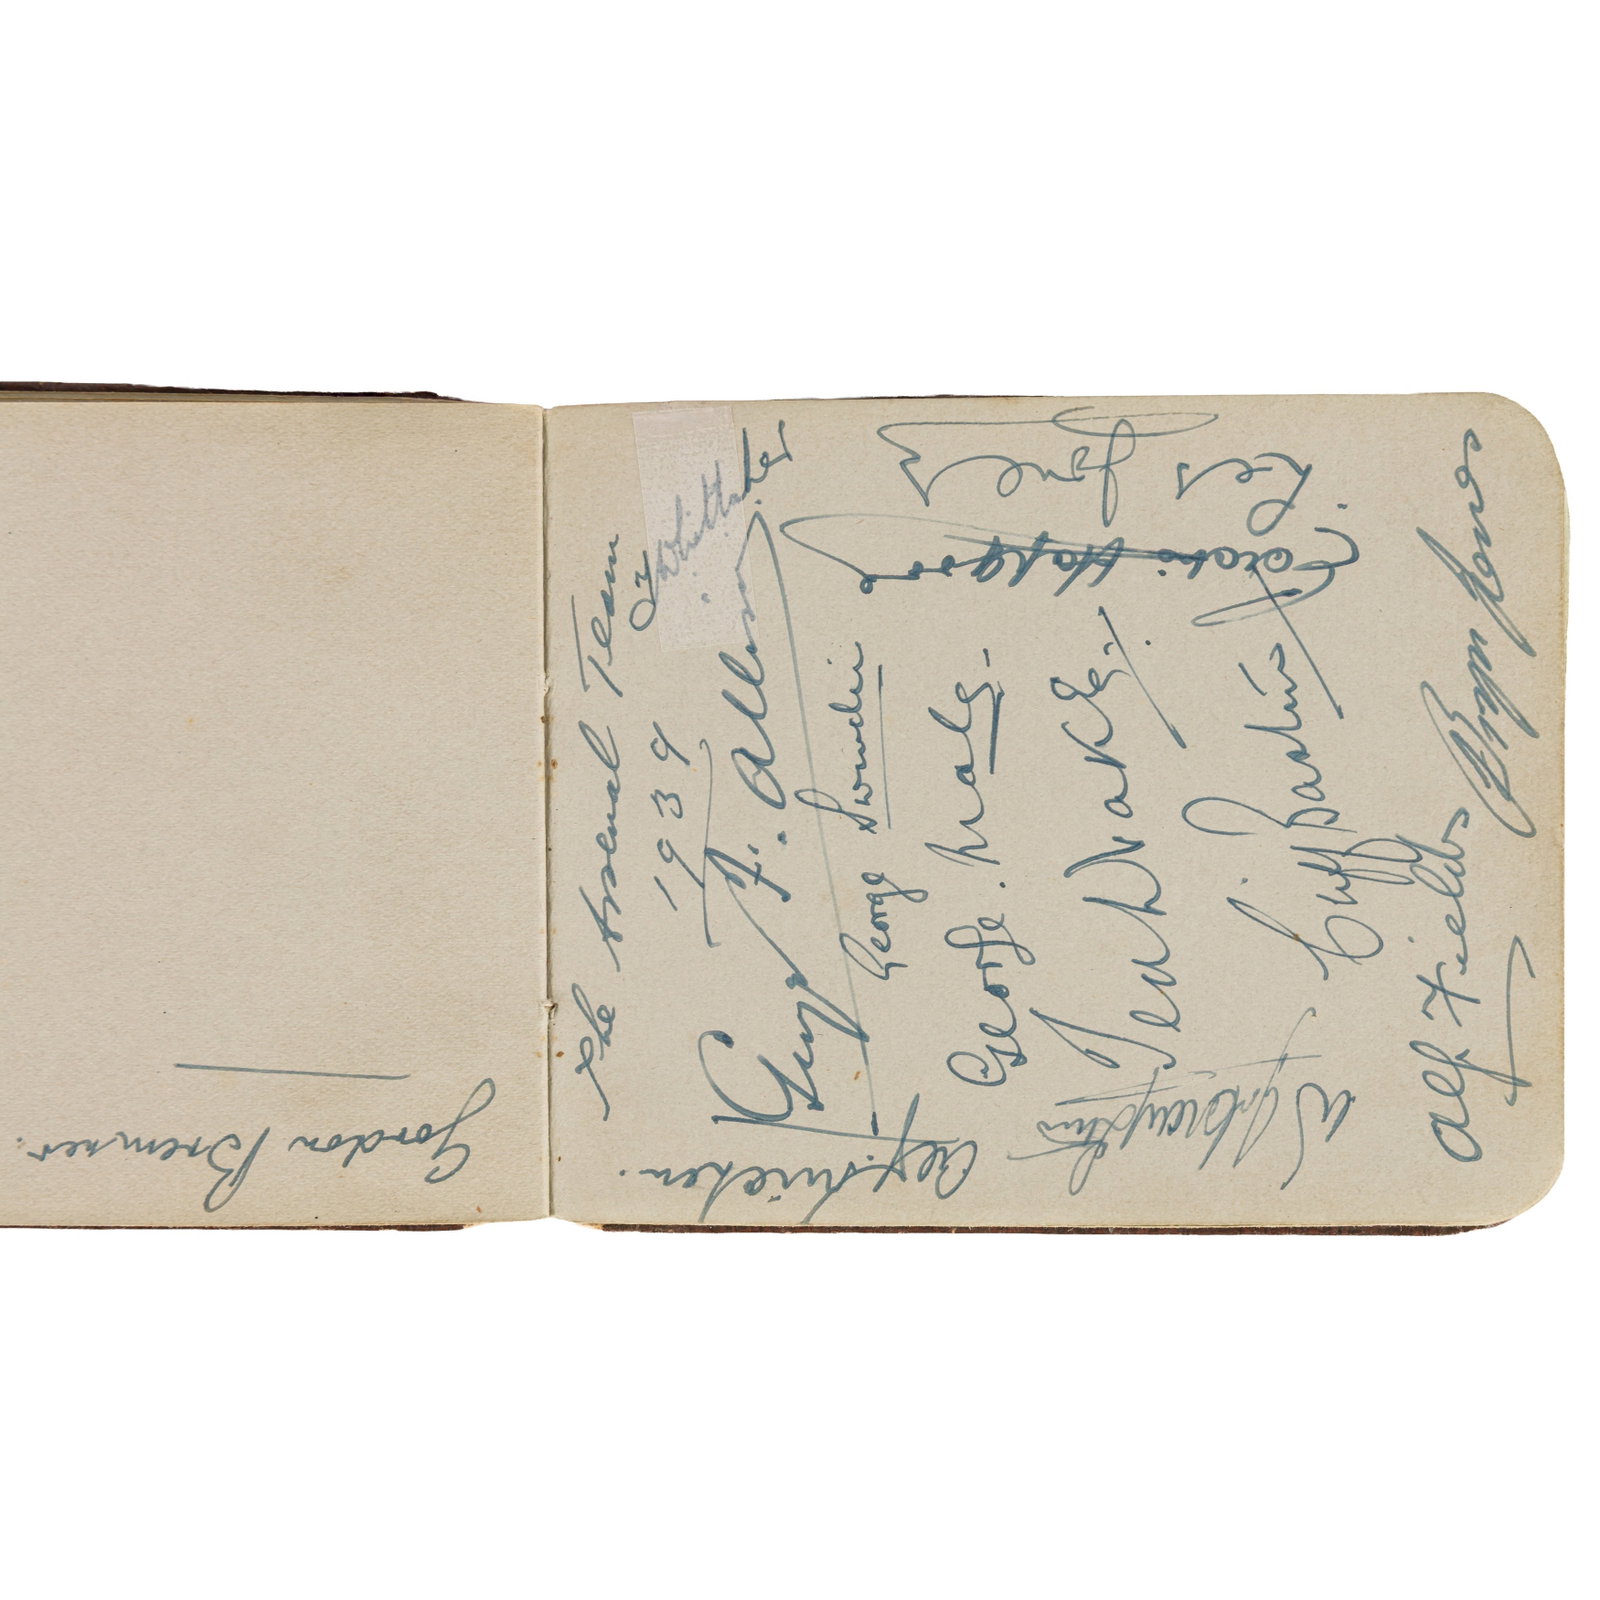 The Arsenal Team
1939
T. Whittaker
George F. Allison
George Swindin
George Male
Ted Drake.
Cliff Bastin
Alf Fields
Bryn Jones
Eddie Hapgood
Les Jones
Alf. Kirchen.
Gordon Bremner.